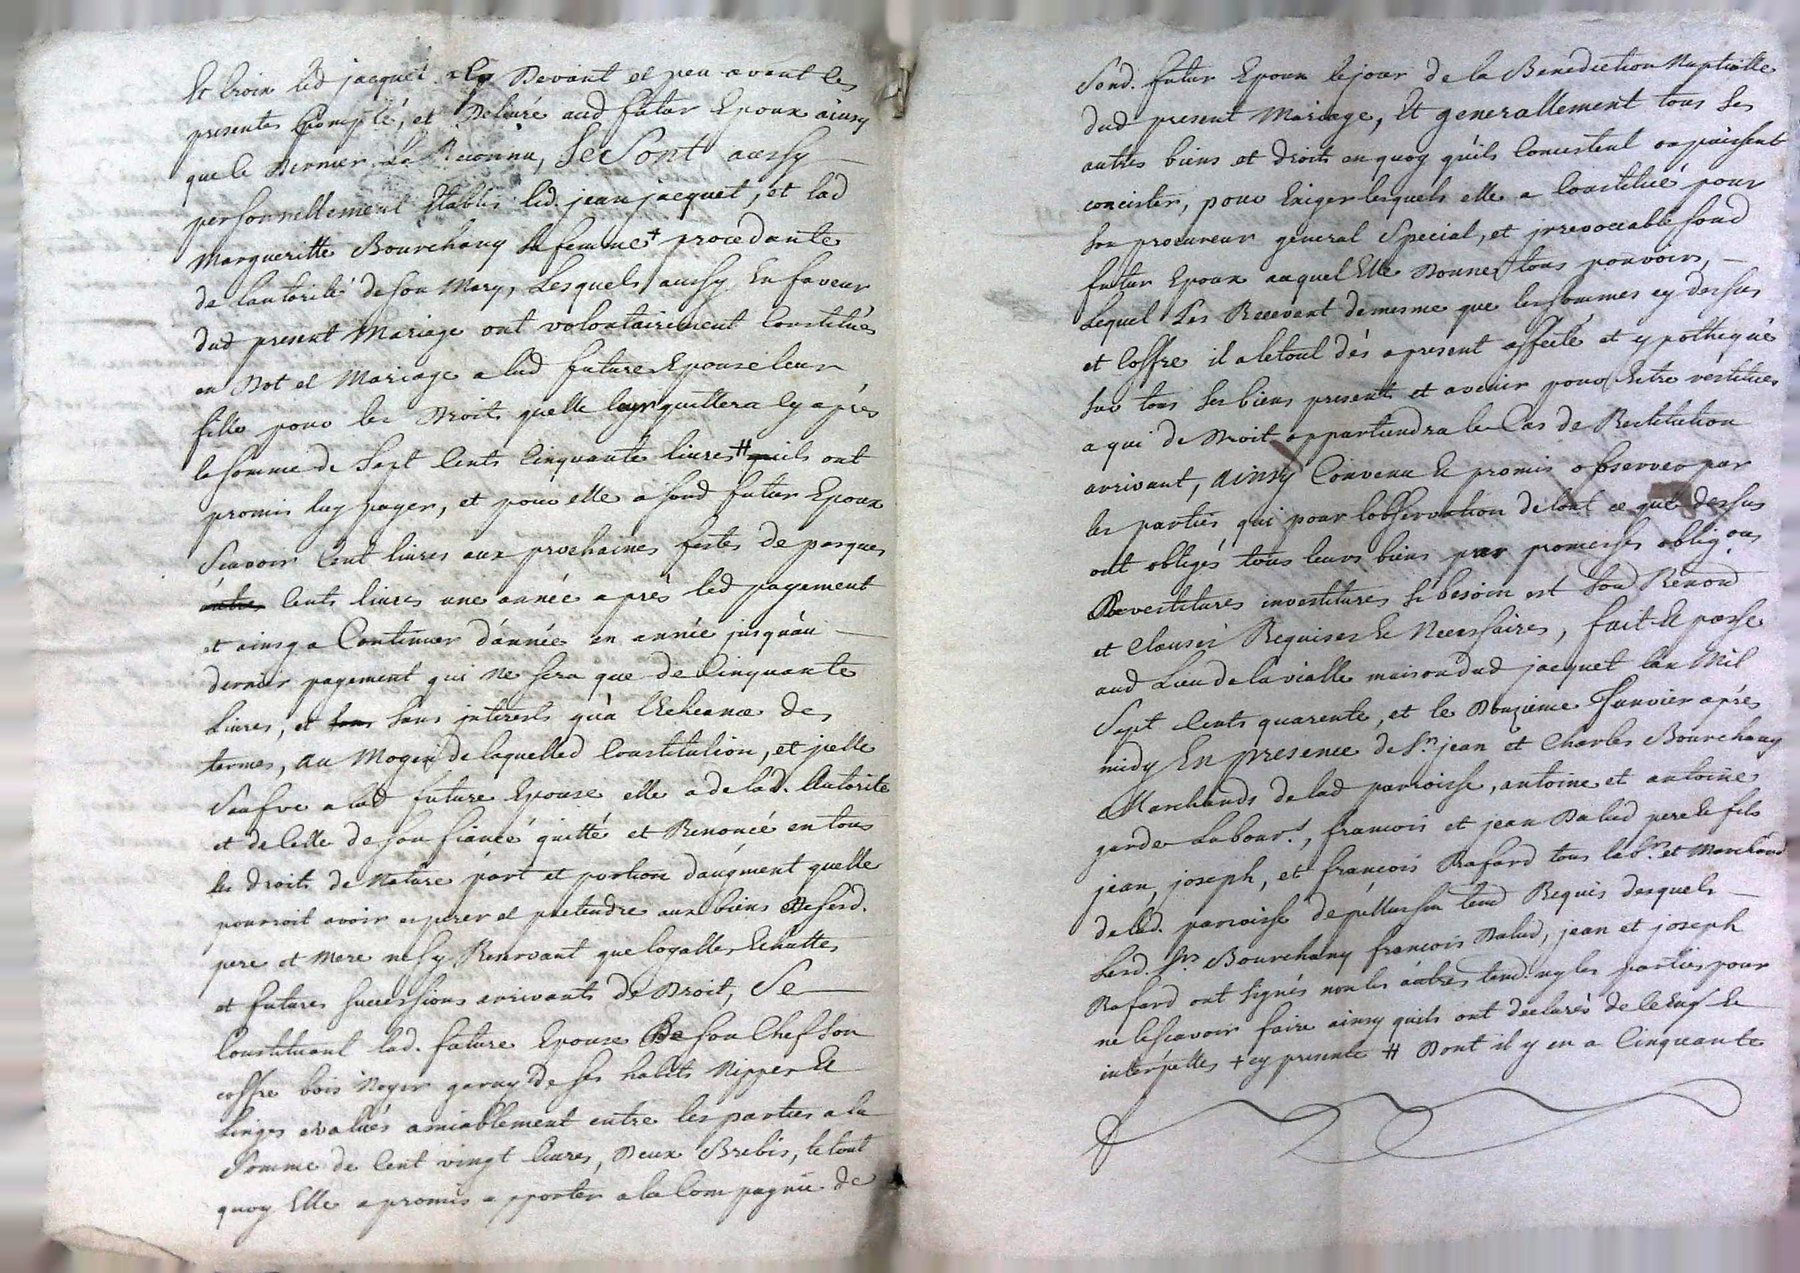 Et croix led jacquet a Devant et peu avant les
presentes Compté, et Delivré aud futur Epoux ainsy
que le Dernier La Reconnu, Se Sont aussy
personnellement Etablis led. jean jacquet, et lad
Margueritte Bourchany sa femme + procedante
de lautorité de son Mary, Lesquels aussy En faveur
dud present Mariage ont volontairement Constitués
en Dot et Mariage a lad future Epouse leur
fille pour les Droits quelle leur quittera Cy après
la somme de Sept Cents Cinquante livres # quils ont
promis luy payer, et pour elle a sond futur Epoux
Scavoir Cent livres aux prochaines festes de pasques
Cents livres une année après led payement
et ainsy a Continuer d'année en année jusqu'au
dernier payement qui ne sera que de Cinquante
livres, et sans interests qu'a l'Echeance des
termes, au Moyen de laquelled Constitution, et jcelle
Sauve a lad future Epouse elle a de lad. Autorité
et de Celle de son fiancé quitté et Renoncé en tous
les droits de Nature part et portion d'augment quelle
pourroit avoir esperer et pretendre aux biens Desesd.
pere et Mere ne sy Reservant que loyalles Echuttes
et futures successions arrivants de Droit, Se
Constituant lad. future Epouse De son Chef son
coffre bois Noyer garny de ses habits Nippes Et
Linges evalués amiablement entre les parties a la
Somme de Cent vingt livres, Deux Brebis, le tout
quoy Elle a promis apporter a la Compagnie de
Sond. futur Epoux le jour de la Benediction Nuptialle
dud present Mariage, Et generallement tous ses
autres biens et droits en quoy quils Concistent ou puissent
concister, pour Exiger lesquels elle a Constitué pour
son procureur general Special, et jrrevocable sond
futur Epoux auquel Elle Donne tous pouvoirs,
Lequel Les Recevant de mesme que les sommes cy dessus
et Coffre il a le tout dés apresent affecté et ypothequé
sur tous ses biens presents et avenir pour Estre restitués
a qui de Droit appartiendra le Cas de Restitution
arrivant, Ainsy Convenu Et promis observer par
les parties qui pour lobservation de tout ce que dessus
ont obligés tous leurs biens par promesses obligons
Devestitures investitures si besoin est Soud Renond
et Clauses Requises Et Necessaires, fait Et passé
aud Lieu de la vialle maison dud jacquet lan Mil
Sept Cents quarente, et le Douzieme Janvier aprés
midy En presence de Sr jean et Charles Bourchany
Marchands de lad parroisse, antoine et antoine
garde Labours, francois et jean Dalud pere et fils
jean, joseph, et françois Rafard tous labrs et Marchand
de lad. parroisse de pellussin temd Requis desquels
Lesd. Srs Bourchany francois Dalud, jean et joseph
Rafard ont signés non les autres temd. ny les parties pour
ne le scavoir faire ainsy quils ont declarés de ce Enqs Et
interpellés + cy presente # Dont il y en a Cinquante